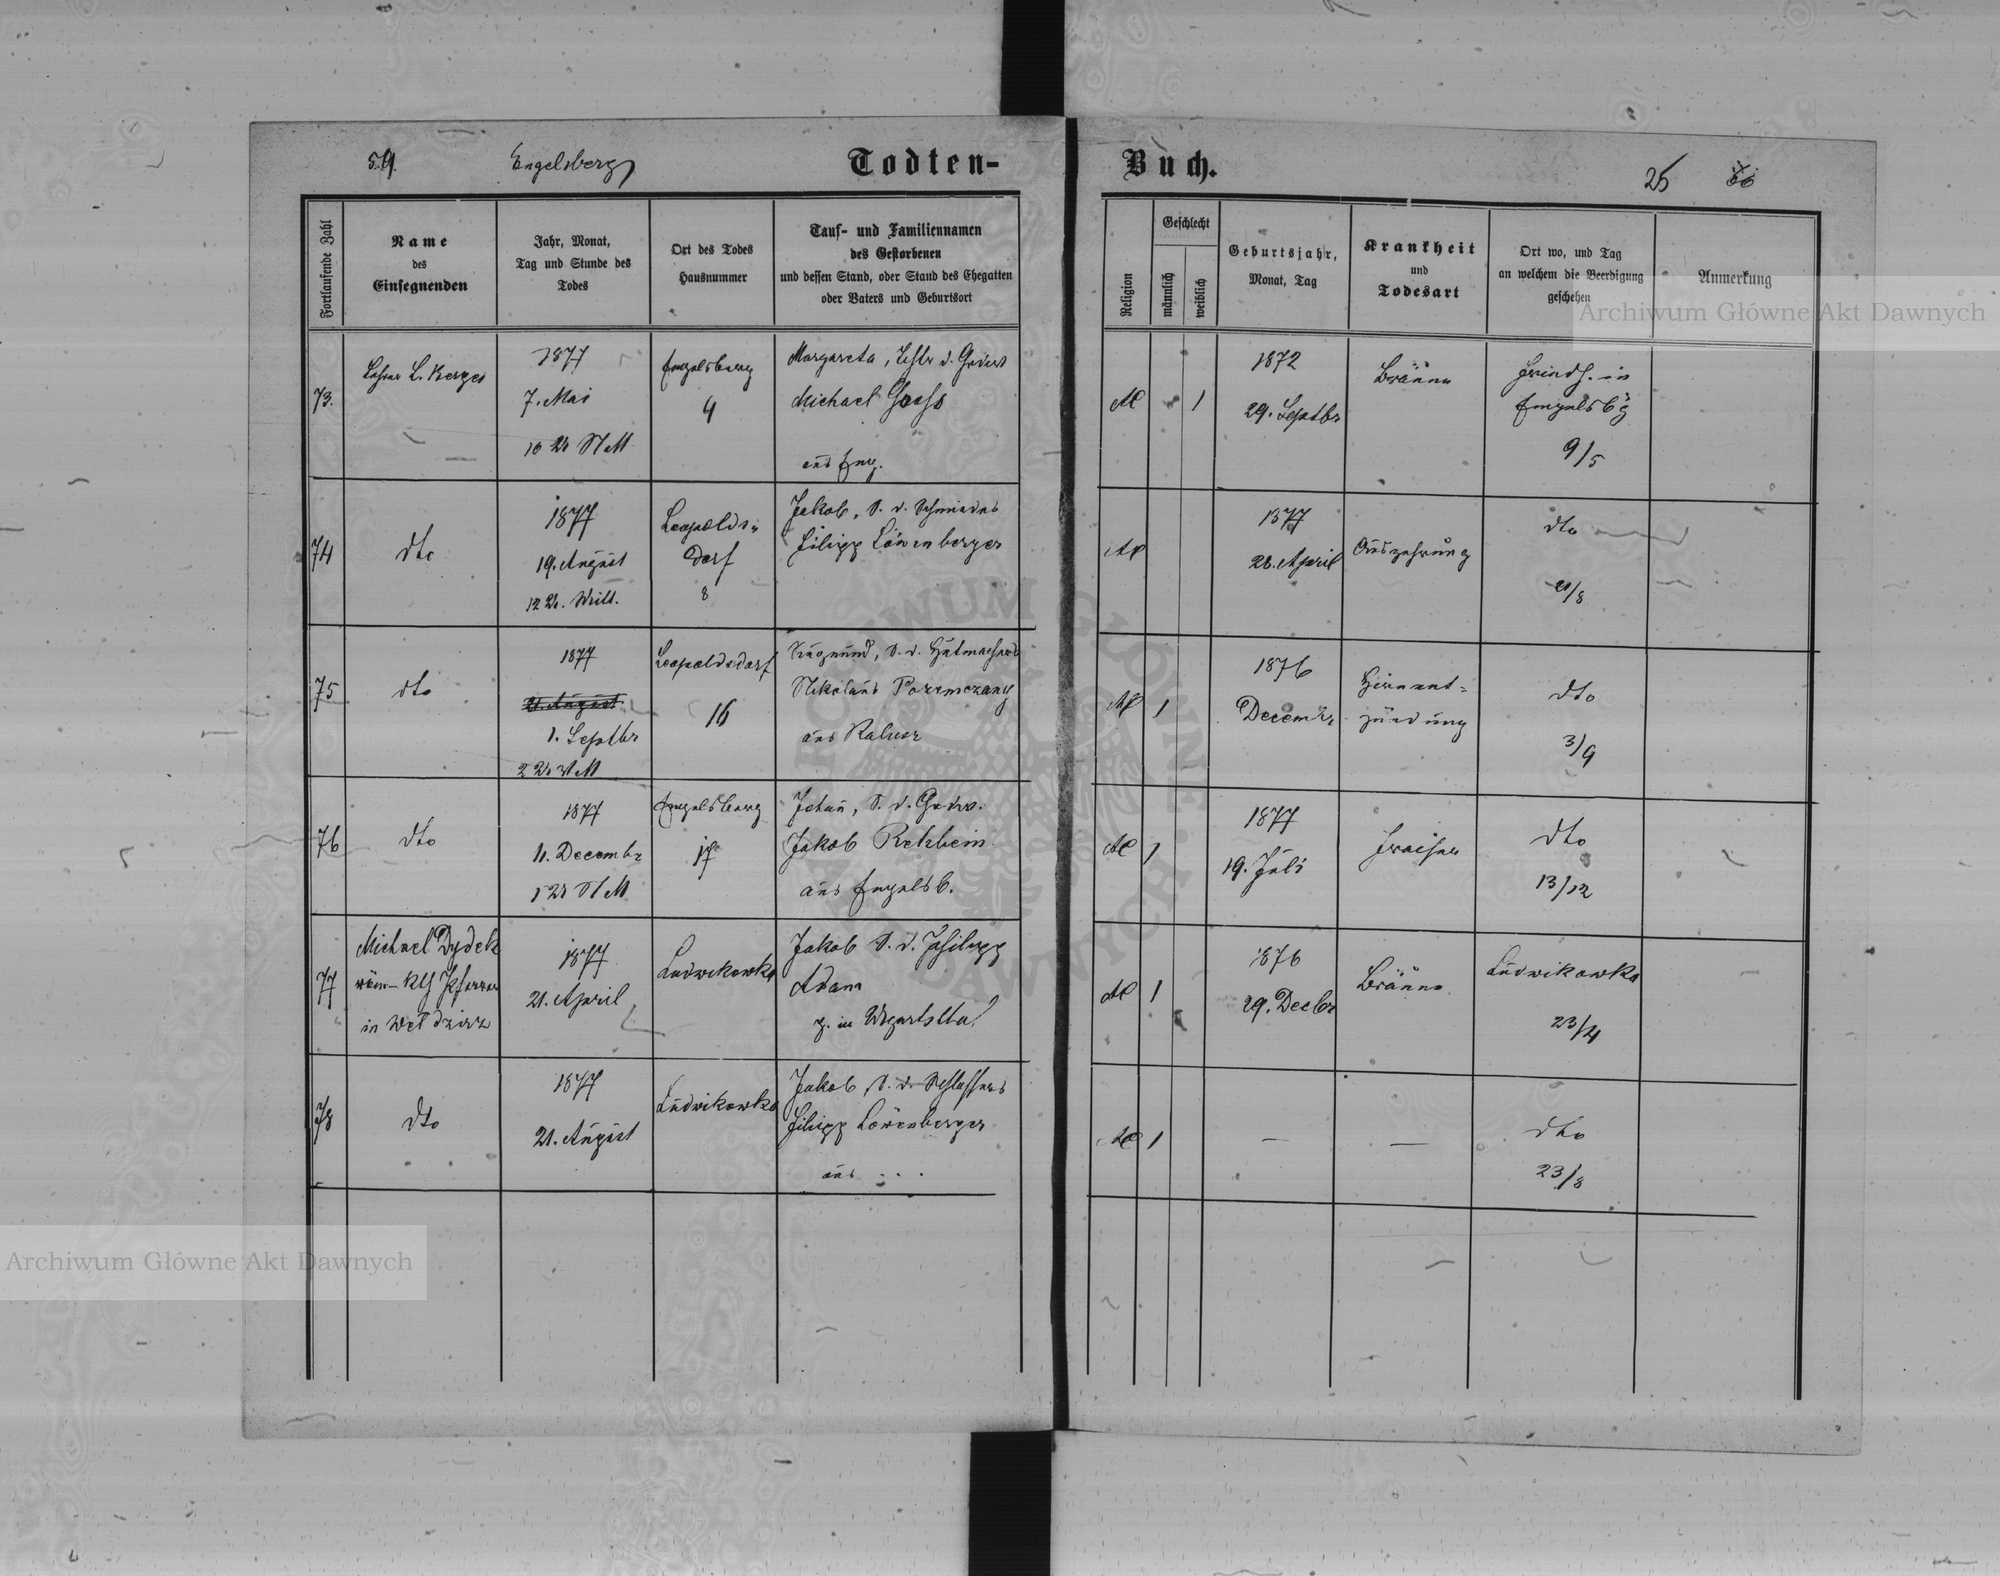 59.
Engelsberg
Todten-
Buch.
25
Fortlaufende Zahl
Name
des
Einsegnenden
Jahr, Monat,
Tag und Stunde des
Todes
Ort des Todes
Hausnummer
Tauf- und Familiennamen
des Gestorbenen
und dessen Stand, oder Stand des Ehegatten
oder Vaters und Geburtsort
Religion
Geschlecht
männlich
weiblich
Geburtsjahr,
Monat, Tag
Krankheit
und
Todesart
Ort wo, und Tag
an welchem die Beerdigung
geschehen
Anmerkung
73.
Lehrer L. Berger
1877
7. Mai
Engelsberg
4
Margareta, d.
Michael
aus Eng.
1
1872
29. Septbr
Bräune
Friedh. in
Engelsbg
9/5
74
dto
1877
19. August
Leopolds-
dorf
8
Jakob, S. d. Schmiedes
Filipp Löwenberger
1877
28. April
Auszehrung
dto
21/8
75
dto
1877
21. August
1. Septbr
Leopoldsdorf
16
S. d. Hutmachers
Nikolaus
aus Kalusz
1
1876
Decembr
Hirnent-
zündung
dto
3/9
76
dto
1877
11. Decembr
Engelsberg
17
Johann, S. d.
Jakob Rehbein
aus Engelsb.
1
1877
19. Juli
Fraisen
dto
13/12
77
Michael Dydek
röm- Pfarrer
in Weldzirz
1877
21. April
Ludwikowka
Jakob S. d. Philipp
Adam
z. in
1
1876
29. Decbr
Bräune
Ludwikowka
23/4
78
dto
1877
21. August
Ludwikowka
Jakob, S. d. Schlossers
Filipp Löwenberger
aus . . .
1
—
—
dto
23/8
Archiwum Główne Akt Dawnych
Archiwum Główne Akt Dawnych
ARCHIWUM GŁÓWNE AKT DAWNYCH